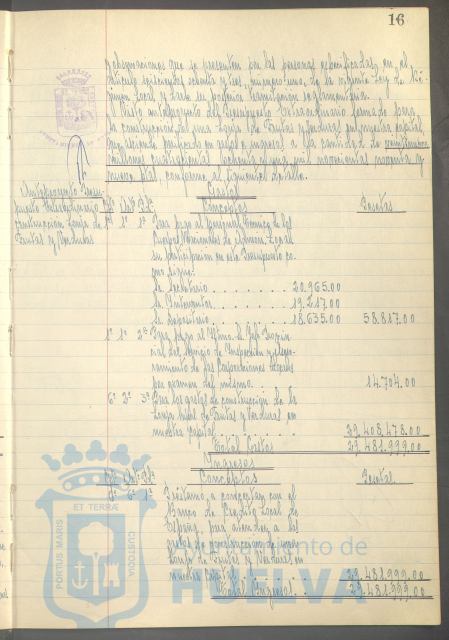 16
y observaciones que se presenten por las personas especificadas en el
artículo seiscientos ochenta y tres, número uno, de la vigente Ley de Ré-
gimen Local y darle su posterior tramitación reglamentaria.
Visto anteproyecto del Presupuesto Extraordinario formado para
la construcción de una Lonja de Frutas y Verduras en nuestra capital,
que asciende nivelado en gastos e ingresos a la cantidad de veintinueve
millones cuatrocientas ochenta y una mil novecientas noventa y
nueve ptas, conforme al siguiente detalle.
Anteproyecto Presu-
puesto Extraordinario
construcción Lonja de
Frutas y Verduras
Gastos
Conceptos Pesetas
1º 1º 1º Para pago al personal técnico de los
Cuerpos Nacionales de Admon. Local
su participación en este Presupuesto co-
mo sigue:
Sr. Secretario . . . . . . . . 20.965.00
Sr. Interventor . . . . . . . 19.217.00
Sr. Depositario . . . . . . . 18.635.00 58.817.00
1º 1º 2º Para pago al Iltmo. Sr. Jefe Provin-
cial del Servicio de Inspección y Aseso-
ramiento de las Corporaciones Locales
por examen del mismo . . 14.704.00
6º 2º 3º Para los gastos de construcción de la
Lonja local de Frutas y Verduras en
nuestra capital . . . . . . . 29.408.478.00
Total Gastos 29.481.999.00
Ingresos
Conceptos Pesetas
6º 1º Préstamo a concertar con el
Banco de Crédito Local de
España, para atender a los
gastos de construcción de una
Lonja de Frutas y Verduras en
nuestra capital . . . . 29.481.999.00
Total Ingresos . . 29.481.999.00
PORTUS MARIS ET TERRÆ CUSTODIA
Ayuntamiento de
HUELVA